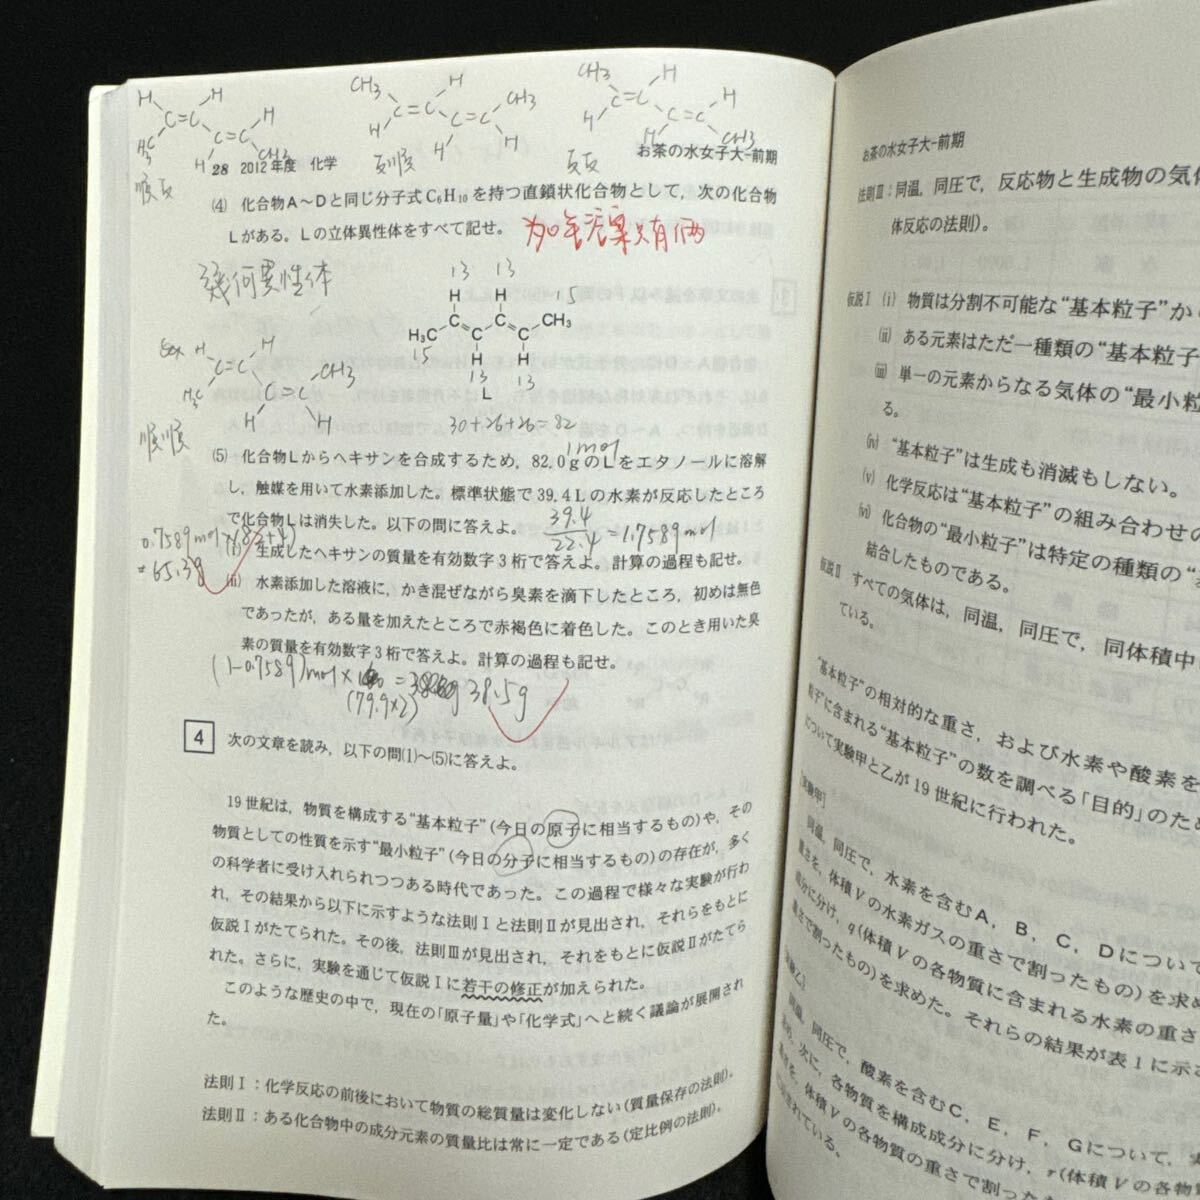 CH3
H
H
H
H
H
CH3
H
CH3
C=C
C=C
CH3
H
H
H
H
CH3
28 2012年度 化学
お茶の水女子大-前期
順反
反順
反反
(4) 化合物A～Dと同じ分子式C6H10を持つ直鎖状化合物として,次の化合物
Lがある。Lの立体異性体をすべて記せ。
幾何異性体
13 13
H H 15
H3C CH3
15 H H
13 13
L
30+26+26=82
H H
C=C CH3
H3C C=C
H H
順順
1mol
(5) 化合物Lからヘキサンを合成するため,82.0gのLをエタノールに溶解
し,触媒を用いて水素添加した。標準状態で39.4Lの水素が反応したところ
で化合物Lは消失した。以下の問に答えよ。
39.4
22.4
=1.7589mol
0.7589mol×(82+4)
=65.3g
(i) 生成したヘキサンの質量を有効数字3桁で答えよ。計算の過程も記せ。
(ii) 水素添加した溶液に,かき混ぜながら臭素を滴下したところ,初めは無色
であったが,ある量を加えたところで赤褐色に着色した。このとき用いた臭
素の質量を有効数字3桁で答えよ。計算の過程も記せ。
(1-0.7589)mol×
(79.9×2)
38.5g
4 次の文章を読み,以下の問(1)～(5)に答えよ。
19世紀は,物質を構成する“基本粒子”(今日の原子に相当するもの)や,その
物質としての性質を示す“最小粒子”(今日の分子に相当するもの)の存在が,多く
の科学者に受け入れられつつある時代であった。この過程で様々な実験が行わ
れ,その結果から以下に示すような法則Ⅰと法則Ⅱが見出され,それらをもとに
仮説Ⅰがたてられた。その後,法則Ⅲが見出され,それをもとに仮説Ⅱがたてら
れた。さらに,実験を通じて仮説Ⅰに若干の修正が加えられた。
このような歴史の中で,現在の「原子量」や「化学式」へと続く議論が展開され
た。
法則Ⅰ:化学反応の前後において物質の総質量は変化しない(質量保存の法則)。
法則Ⅱ:ある化合物中の成分元素の質量比は常に一定である(定比例の法則)。
お茶の水女子大-前期
法則Ⅲ:同温,同圧で,反応物と生成物の気体
体反応の法則)。
仮説Ⅰ (i) 物質は分割不可能な“基本粒子”か
(ii) ある元素はただ一種類の“基本粒子
(iii) 単一の元素からなる気体の“最小粒
る。
(iv) “基本粒子”は生成も消滅もしない。
(v) 化学反応は“基本粒子”の組み合わせの
(vi) 化合物の“最小粒子”は特定の種類の“
結合したものである。
仮説Ⅱ すべての気体は,同温,同圧で,同体積中
ている。
“基本粒子”の相対的な重さ,および水素や酸素を
粒子”に含まれる“基本粒子”の数を調べる「目的」のため
について実験甲と乙が19世紀に行われた。
[実験甲]
同温,同圧で,水素を含むA,B,C,Dについて
重さを,体積Vの水素ガスの重さで割ったもの)を求め
成分に分け,q(体積Vの各物質に含まれる水素の重さ
重さで割ったもの)を求めた。それらの結果が表1に示さ
[実験乙]
同温,同圧で,酸素を含むC,E,F,Gについて,
求め,次に,各物質を構成成分に分け,r(体積Vの各物
重さを,体積Vの各物質の重さで割った
されている。